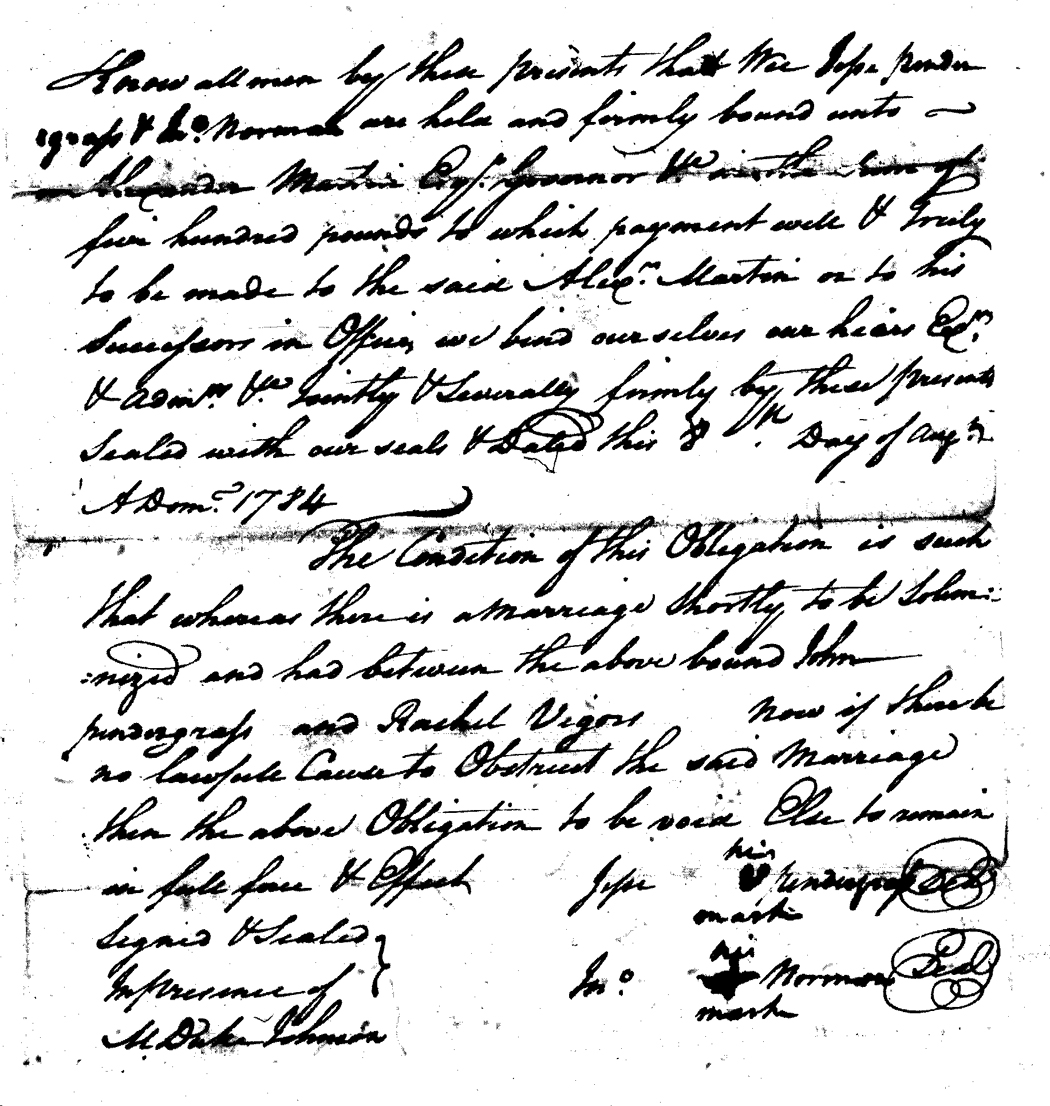 Know all men by these presents that Wee Jesse pender
grass & Jno. Norman are held and firmly bound unto
Alexander Martin Esqr. Governor &c in the Sum of
five hundred pounds to which payment well & Truly
to be made to the said Alexr. Martin or to his
Successors in Office, we bind our selves our heirs Exrs.
& Admrs. &c. Jointly & Severally firmly by these presents
Sealed with our seals & Dated this 8th. Day of Augt.
A Dom. 1784
The Condition of this Obligation is such
that whereas there is a Marriage Shortly to be Solem:
:nized and had between the above bound John
pendergrass and Rachel Vigors Now if there be
no lawfull Cause to Obstruct the said Marriage
then the above Obligation to be void Else to remain
in full force & Effect Jesse his mark pendergrass Seal
Signed & Sealed
In presence of Jno. his mark Norman Seal
M. Duke Johnson